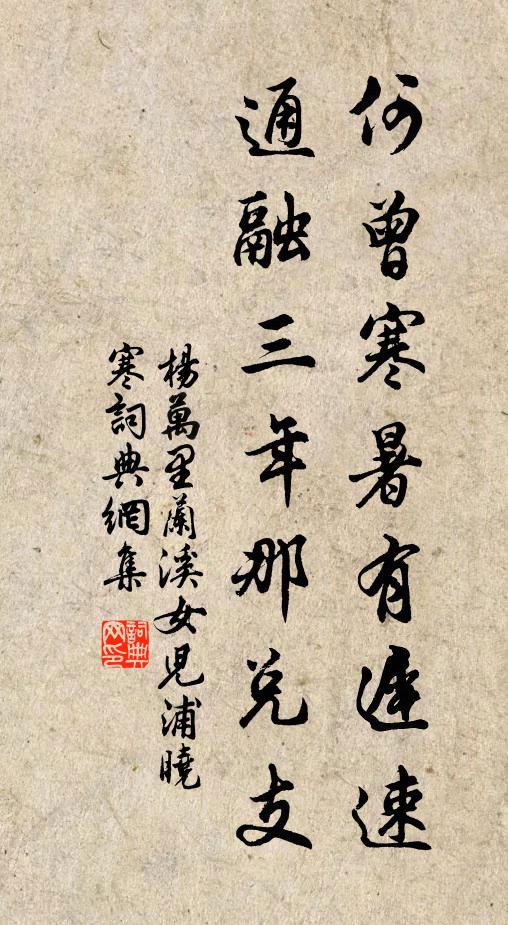 何曾寒暑有遲速
通融三年那兑支
楊萬里蘭溪女児浦曉
寒詞典網集
詞典網印